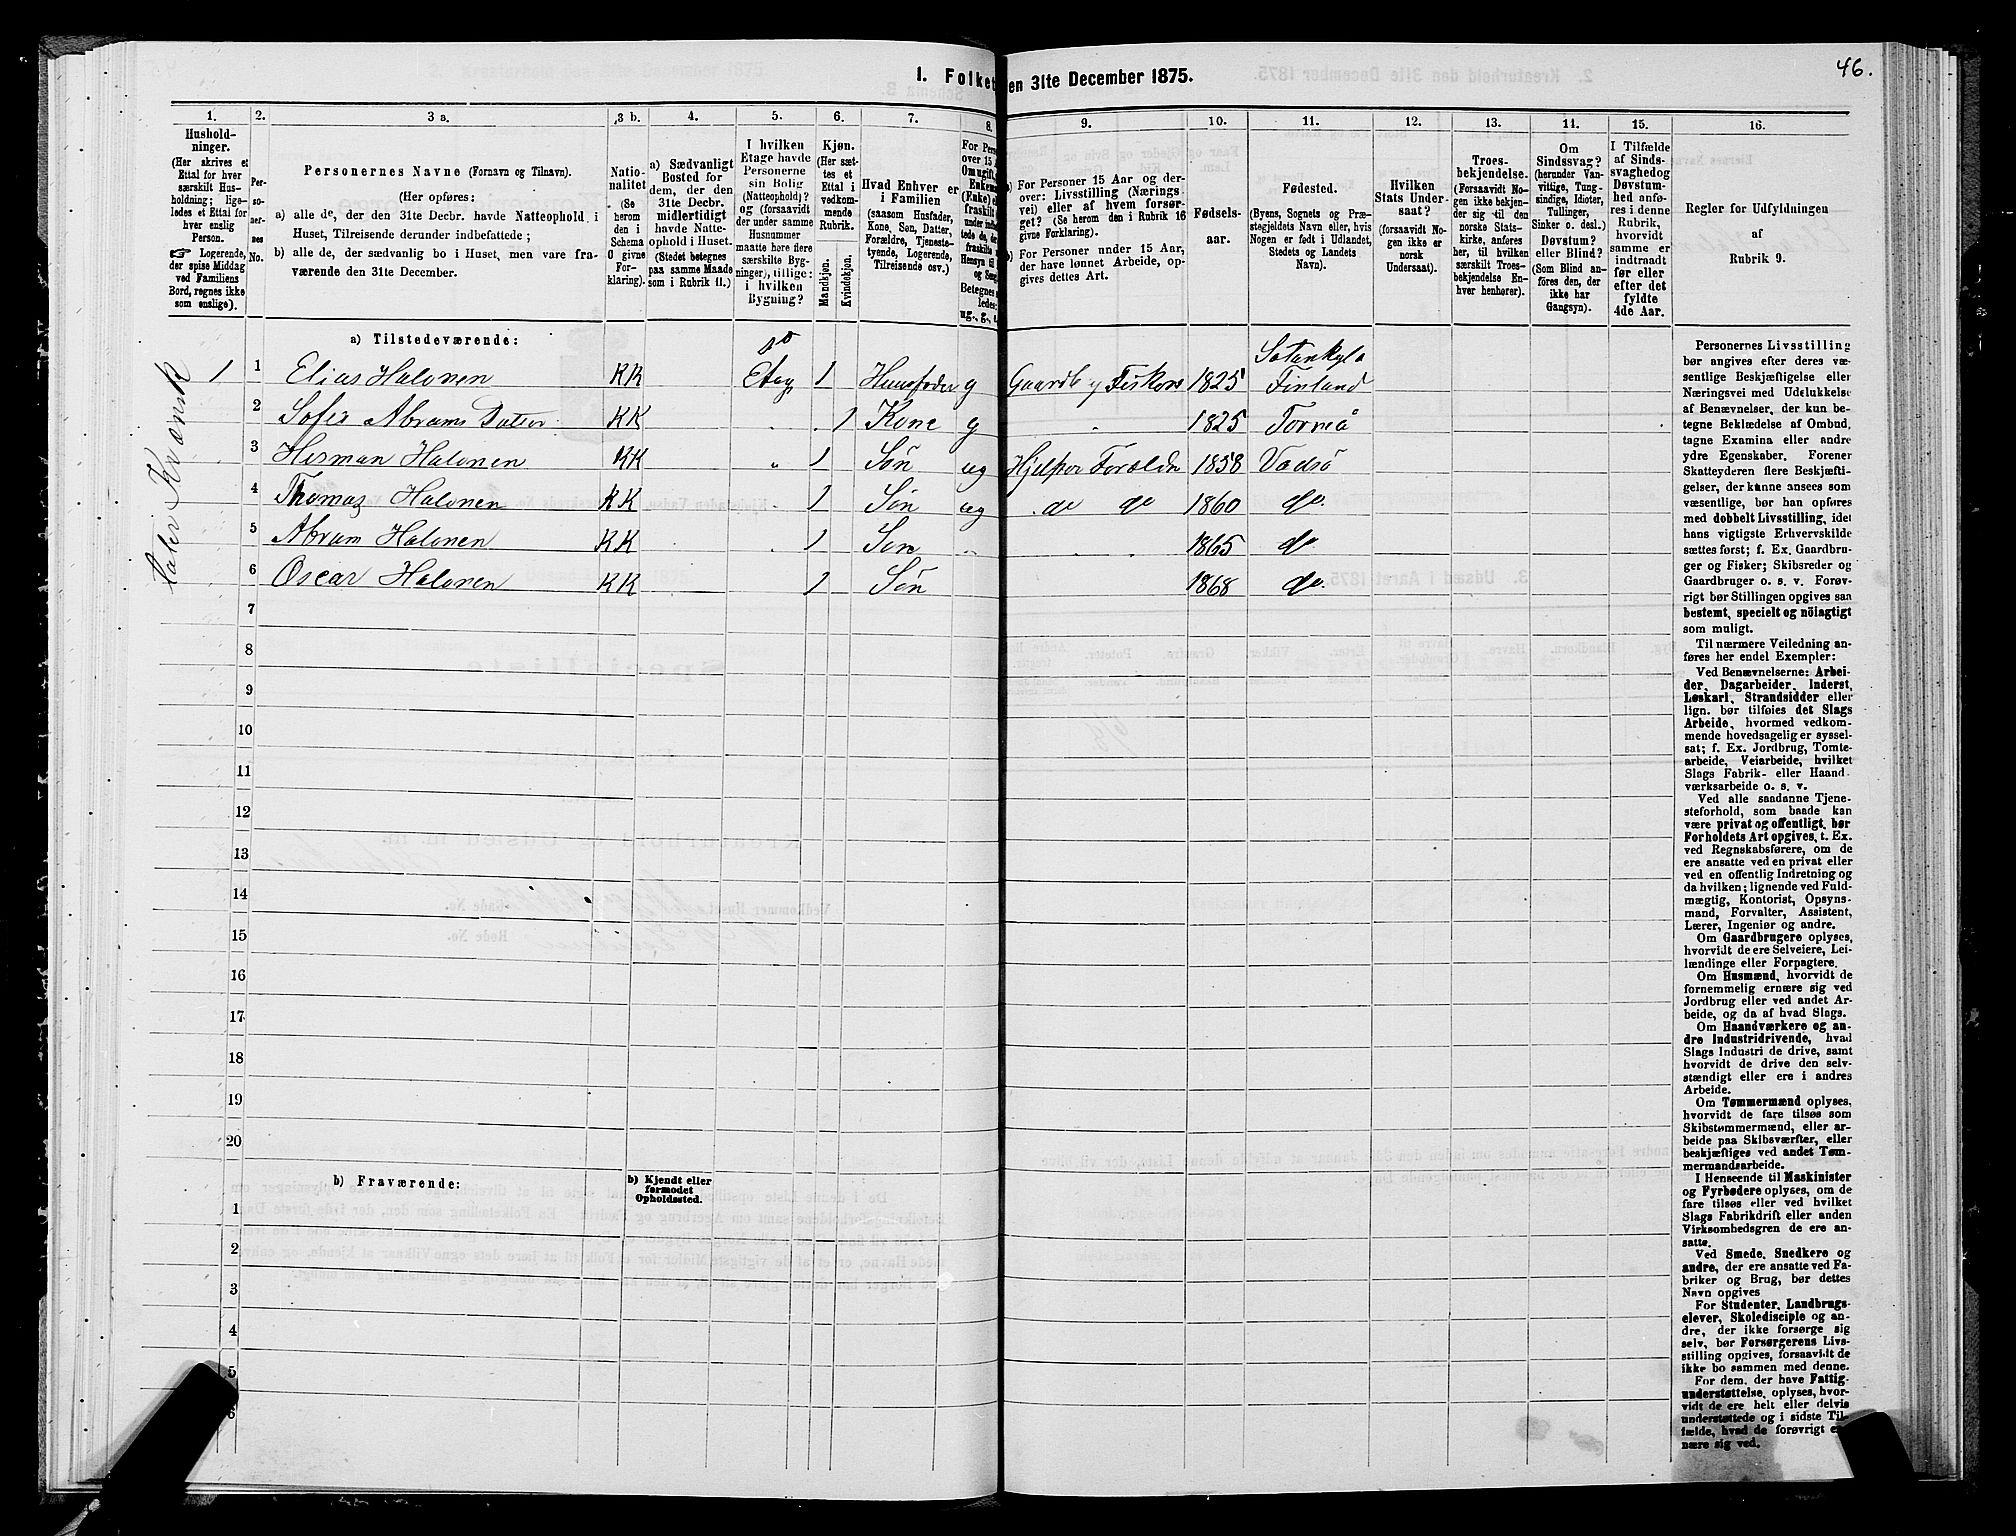 46.
1. Folket
en 31te December 1875.
1.
2.
3 a.
3 b.
4.
5.
6.
7.
8.
9.
10.
11.
12.
13.
14.
15.
16.
Hushold-
ninger.
(Her skrives et
Ettal for hver
særskilt Hus-
holdning; lige-
ledes et Ettal for
hver enslig
Person.
☞ Logerende,
der spise Middag
ved Familiens
Bord, regnes ikke
som enslige).
Per-
so-
ner-
nes
No.
Personernes Navne (Fornavn og Tilnavn).
(Her opføres:
a) alle de, der den 31te Decbr. havde Natteophold i
Huset, Tilreisende derunder indbefattede;
b) alle de, der sædvanlig bo i Huset, men vare fra-
værende den 31te December.
Natio-
nalitet
(Se
herom
den i
Schema
O givne
For-
klaring).
a) Sædvanligt
Bosted for
dem, der den
31te Decbr.
midlertidigt
havde Natte-
ophold i Huset.
(Stedet betegnes
paa samme Maade
som i Rubrik 11.)
I hvilken
Etage havde
Personerne
sin Bolig
(Natteophold)?
og (forsaavidt
der under samme
Husnummer
maatte høre flere
særskilte Byg-
ninger), tillige:
i hvilken
Bygning?
Kjøn.
(Her sæt-
tes et
Ettal i
vedkom-
mende
Rubrik.
Mandkjøn.
Kvindekjøn.
Hvad Enhver er
i Familien
(saasom Husfader,
Kone, Søn, Datter,
Forældre, Tjeneste-
tyende, Logerende,
Tilreisende osv.)
For Pers
over 15 A
Om ugift,
Enkem
(Enke) e
fraskilt
a) For Personer 15 Aar og der-
over: Livsstilling (Nærings-
vei) eller af hvem forsør-
get? (Se herom den i Rubrik 16
givne Forklaring).
b) For Personer under 15 Aar,
der have lønnet Arbeide, op-
gives dettes Art.
Fødsels-
aar.
Fødested.
(Byens, Sognets og Præ-
stegjeldets Navn eller, hvis
Nogen er født i Udlandet,
Stedets og Landets
Navn).
Hvilken
Stats Under-
saat?
(forsaavidt No-
gen ikke er
norsk
Undersaat).
Troes-
bekjendelse.
(Forsaavidt No-
gen ikke bekjen-
der sig til den
norske Stats-
kirke, anføres
her, til hvilken
særskilt Troes-
bekjendelse En-
hver henhører).
Om
Sindssvag?
(herunder Van-
vittige, Tung-
sindige, Idioter,
Tullinger,
Sinker o. desl.)
Døvstum?
eller Blind?
(Som Blind an-
føres den, der
ikke har
Gangsyn).
I Tilfælde
af Sinds-
svaghed og
Døvstum-
hed anfø-
res i denne
Rubrik,
hvorvidt
samme er
indtraadt
før eller
efter det
fyldte
4de Aar.
Regler for Udfyldningen
af
Rubrik 9.
a) Tilstedeværende:
1 1 Elias Halonen KK Etag 1 Huusfader g Gaardb og Fisker 1825 Sotankylä Finland
2 Sofie Abrams Datter KK 1 Kone g 1825 Torneå
3 Herman Halonen KK 1 Søn ug Hjelper Forældr 1858 Vadsö
4 Thomas Halonen KK 1 Søn ug do do 1860 do.
5 Abram Halonen KK 1 Søn 1865 do
6 Oscar Halonen KK 1 Søn 1868 do.
7
8
9
10
11
12
13
14
15
16
17
18
19
20
b) Fraværende:
b) Kjendt eller
formodet
Opholdssted.
1
2
3
4
5
6
Personernes Livsstilling
bør angives efter deres væ-
sentlige Beskjæftigelse eller
Næringsvei med Udelukkelse
af Benævnelser, der kun be-
tegne Beklædelse af Ombud,
tagne Examina eller andre
ydre Egenskaber. Forener
Skatteyderen flere Beskjæfti-
gelser, der kunne ansees som
væsentlige, bør han opføres
med dobbelt Livsstilling, idet
hans vigtigste Erhvervskilde
sættes først; f. Ex. Gaardbru-
ger og Fisker; Skibsreder og
Gaardbruger o. s. v. Forøv-
rigt bør Stillingen opgives saa
bestemt, specielt og nöiagtigt
som muligt.
Til nærmere Veiledning an-
føres her endel Exempler:
Ved Benævnelserne: Arbei-
der, Dagarbeider, Inderst,
Løskarl, Strandsidder eller
lign. bør tilføies det Slags
Arbeide, hvormed vedkom-
mende hovedsagelig er syssel-
sat; f. Ex. Jordbrug, Tomte-
arbeide, Veiarbeide, hvilket
Slags Fabrik- eller Haand-
værksarbeide o. s. v.
Ved alle saadanne Tjene-
steforhold, som baade kan
være privat og offentligt, bør
Forholdets Art opgives, t. Ex.
ved Regnskabsførere, om de
ere ansatte ved en privat eller
ved en offentlig Indretning og
da hvilken; lignende ved Fuld-
mægtig, Kontorist, Opsyns-
mand, Forvalter, Assistent,
Lærer, Ingeniør og andre.
Om Gaardbrugere oplyses,
hvorvidt de ere Selveiere, Lei-
lændinge eller Forpagtere.
Om Husmænd, hvorvidt de
fornemmelig ernære sig ved
Jordbrug eller ved andet Ar-
beide, og da af hvad Slags.
Om Haandværkere og an-
dre Industridrivende, hvad
Slags Industri de drive, samt
hvorvidt de drive den selv-
stændigt eller ere i andres
Arbeide.
Om Tømmermænd oplyses,
hvorvidt de fare tilsøs som
Skibstømmermænd, eller ar-
beide paa Skibsværfter, eller
beskjæftiges ved andet Tøm-
mermandsarbeide.
I Henseende til Maskinister
og Fyrbødere oplyses, om de
fare tilsøs eller ved hvilket
Slags Fabrikdrift eller anden
Virksomhedsgren de ere an-
satte.
Ved Smede, Snedkere og
andre, der ere ansatte ved Fa-
briker og Brug, bør dettes
Navn opgives
For Studenter, Landbrugs-
elever, Skoledisciple og an-
dre, der ikke forsørge sig
selv, bør Forsørgerens Livs-
stilling opgives, forsaavidt de
ikke bo sammen med denne.
For dem, der have Fattig-
understøttelse, oplyses, hvor-
vidt de ere helt eller delvis
understøttede og i sidste Til-
fælde, hvad de forøvrigt er-
nære sig ved.